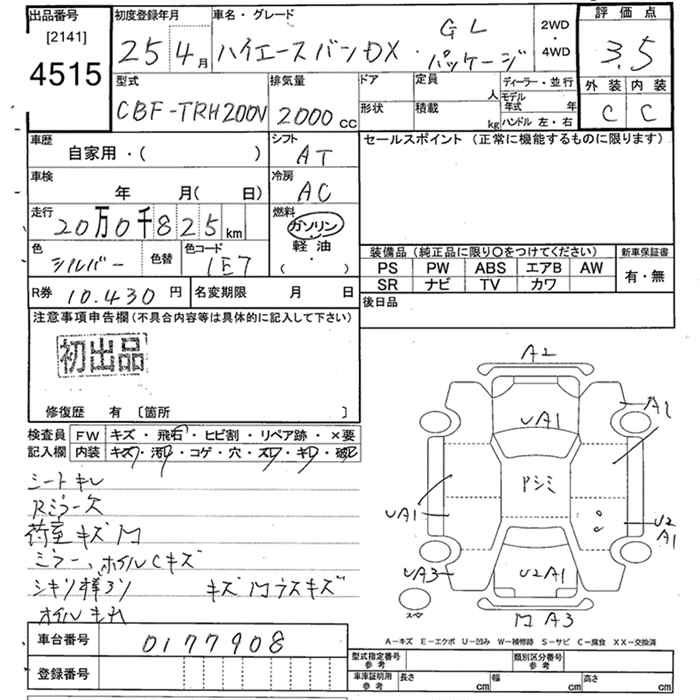 出品番号
[2141]
4515
初度登録年月
25 4 月
車名・グレード
ハイエースバンDX・GLパッケージ
2WD
・
4WD
評価点
3.5
外装 内装
C C
型式
CBF-TRH200V
排気量
2000 cc
ドア
形状
定員 人
積載 kg
ディーラー・並行
モデル年式 年
ハンドル 左・右
車歴
自家用・( )
シフト
AT
セールスポイント (正常に機能するものに限ります)
車検
年 月( 日)
冷房
AC
走行
20万0千825 km
燃料
ガソリン
軽油
・
( )
色
シルバー
色替
色コード
1E7
装備品 (純正品に限り○をつけてください)
PS PW ABS エアB AW
SR ナビ TV カワ
新車保証書
有・無
R券 10.430 円
名変期限 月 日
後日品
注意事項申告欄(不具合内容等は具体的に記入して下さい)
初出品
修復歴 有 〔箇所 〕
検査員記入欄
FW キズ・飛石・ヒビ割・リペア跡・×要
内装 キズ・汚レ・コゲ・穴・スレ・キレ・破レ
シートキレ
Rミラー欠
荷室キズ凹
ミラー、ホイルCキズ
シキリ棒ナシ キズ凹ラスキズ
オイルモレ
A2
UA1
A1
Pシミ
UA1
U2
A1
UA3
U2A1
スペア
凹 A3
A-キズ E-エクボ U-凹み W-補修跡 S-サビ C-腐食 XX-交換済
車台番号 0177908
登録番号
型式指定番号
参考
類別区分番号
参考
車庫証明用
参考
長さ cm 幅 cm 高さ cm